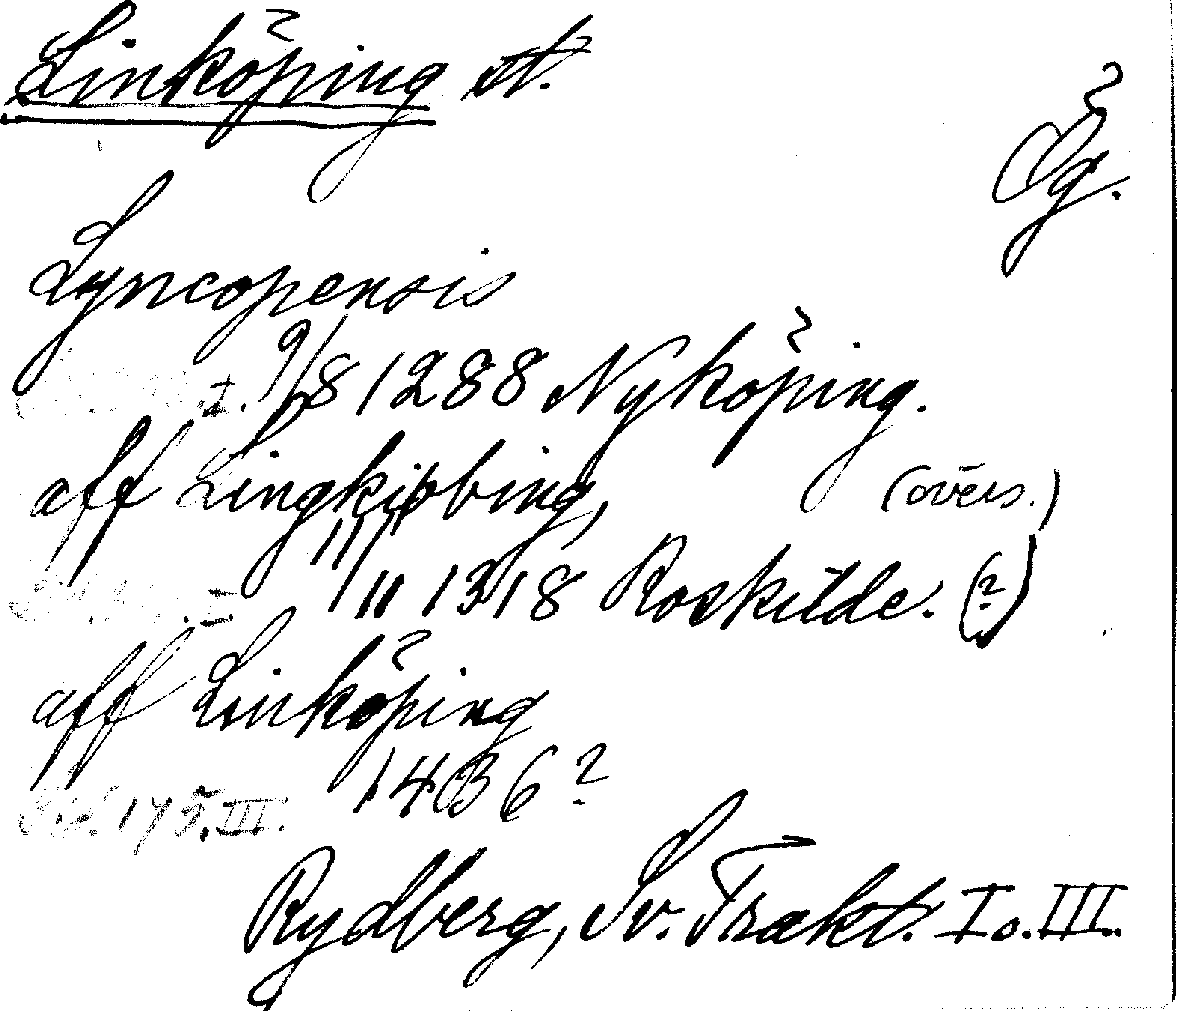 Linköping st.
Ög.
Lyncopensis
I. 9/8 1288 Nyköping.
aff Lingkipbing, (övers.)
II. 11/11 1318 Roskilde. (?)
aff Linköping
1436?
Sid. 175. III.
Rydberg, Sv. Trakt. I o. III.